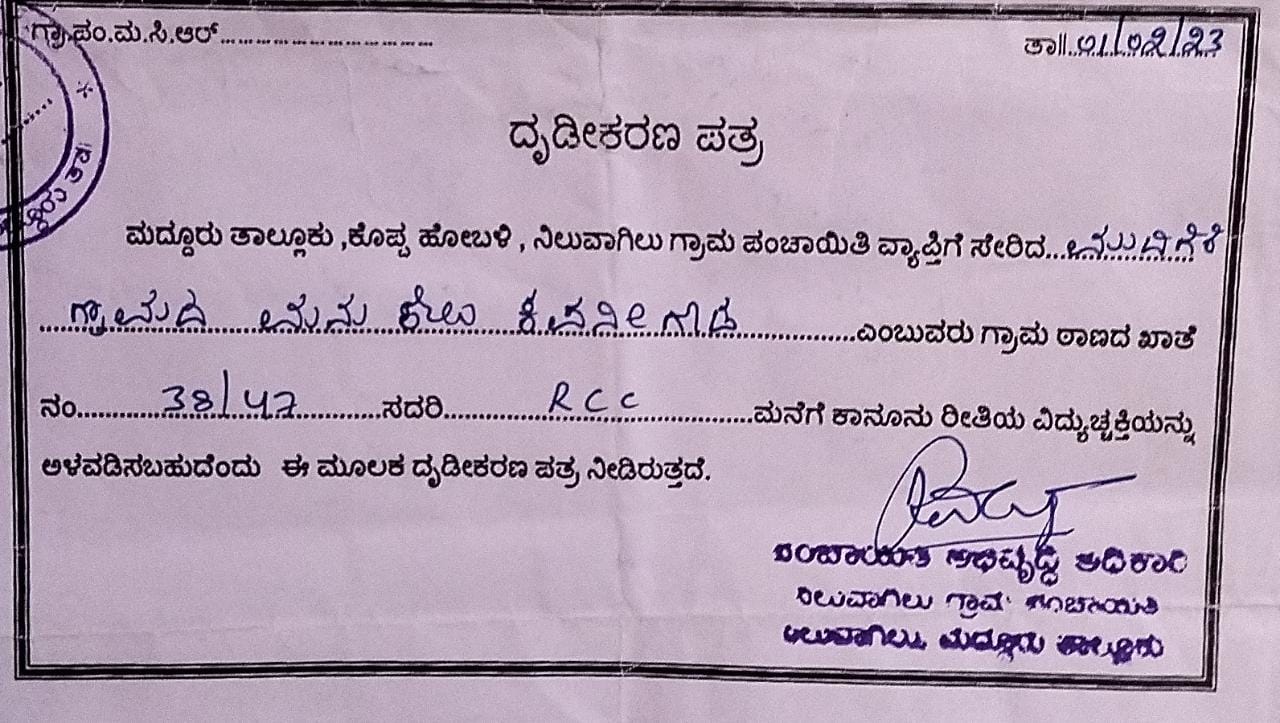 ಗ್ರಾ.ಪಂ.ಮ.ಸಿ.ಆರ್.................................. ತಾ||..01/02/23
ದೃಡೀಕರಣ ಪತ್ರ
ಮದ್ದೂರು ತಾಲ್ಲೂಕು ,ಕೊಪ್ಪ ಹೋಬಳಿ , ನಿಲುವಾಗಿಲು ಗ್ರಾಮ ಪಂಚಾಯಿತಿ ವ್ಯಾಪ್ತಿಗೆ ಸೇರಿದ...
ಗ್ರಾಮದ ಮನು ........ಎಂಬುವರು ಗ್ರಾಮ ಠಾಣದ ಖಾತೆ
ನಂ.......38/47.......ಸದರಿ.......RCC.......ಮನೆಗೆ ಕಾನೂನು ರೀತಿಯ ವಿದ್ಯುಚ್ಚಕ್ತಿಯನ್ನು
ಅಳವಡಿಸಬಹುದೆಂದು ಈ ಮೂಲಕ ದೃಡೀಕರಣ ಪತ್ರ ನೀಡಿರುತ್ತದೆ.
ಪಂಚಾಯತಿ ಅಭಿವೃದ್ಧಿ ಅಧಿಕಾರಿ
ನಿಲುವಾಗಿಲು ಗ್ರಾಮ ಪಂಚಾಯಿತಿ
ನಿಲುವಾಗಿಲು, ಮದ್ದೂರು ತಾಲ್ಲೂಕು